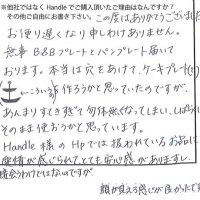 ※他社ではなく Handle でご購入頂いたご理由はなんですか?
その他ご自由にお書き下さい。この度はありがとうございました
お便り遅くなり申しわけありません。
無事 B&Bプレートとパンプレート届いて
おります。本当は穴をあけて、ケーキプレート(
こういうの
作ろうかと思っていたのですが、
あんまりすてきで勿体無くなってしまい、しばらく
そのまま使おうかと思っています。
Handle様の Hpでは扱われているお品に
愛情が感じられてとても安心感がありますし、
機会うわけではないのですが、
顔が見える感じが良かったです